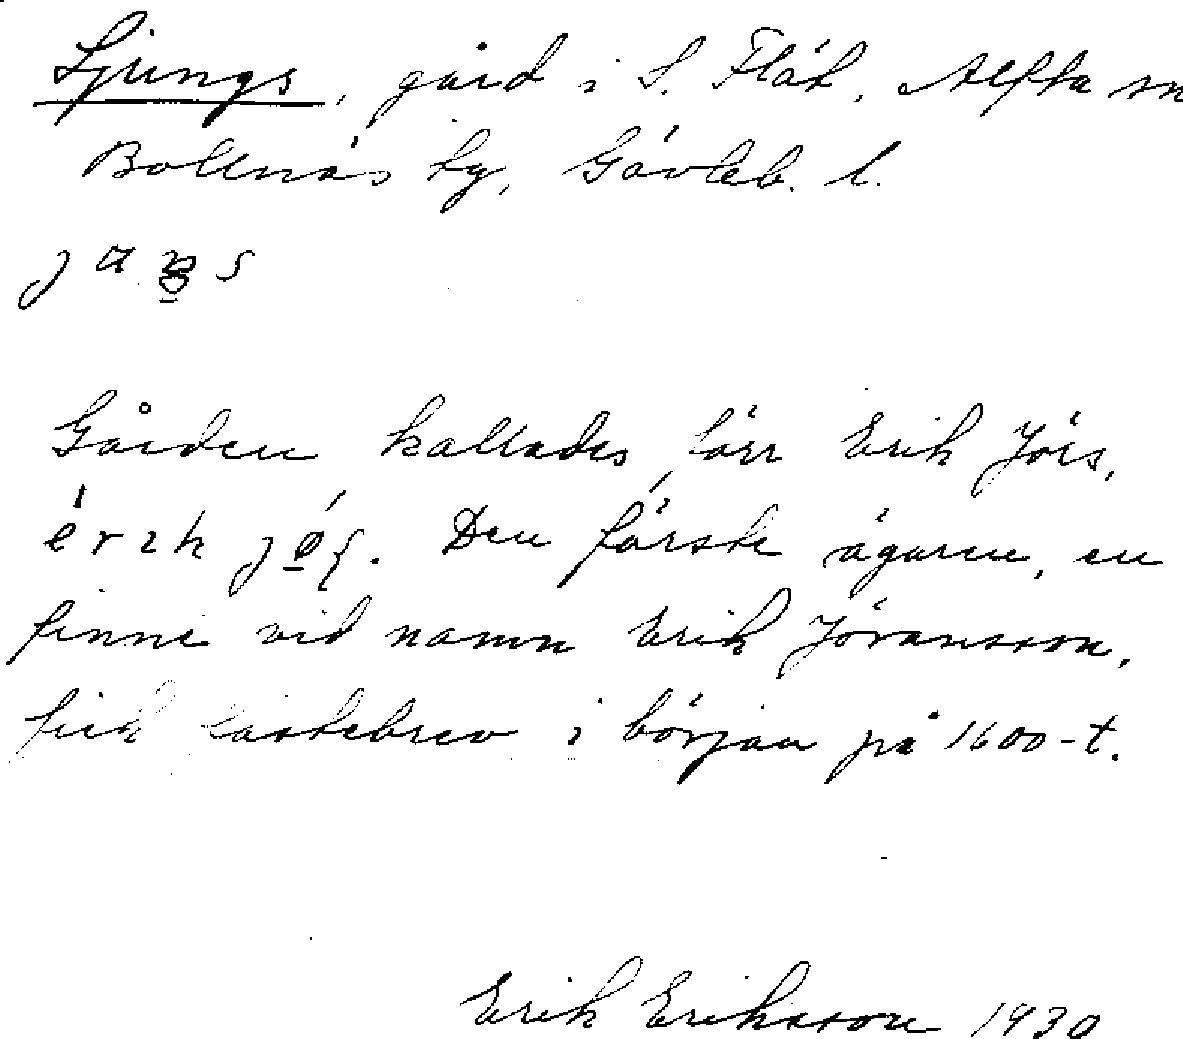 Ljungs, gård i S. Flät, Alfta sn
Bollnäs tg, Gävleb. l.
Gården kallades förr Erik Jörs,
Den förste ägaren, en
finne vid namn Erik Jöransson,
fick fastebrev i början på 1600-t.
Erik Eriksson 1930